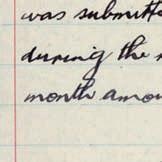 was submitt
during the
month amou